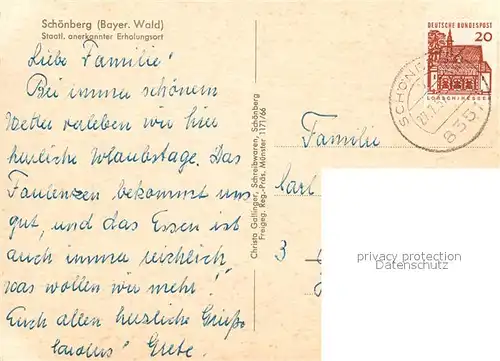 Schönberg (Bayer. Wald)
Staatl. anerkannter Erholungsort
Liebe Familie!
Bei immer schönem
Wetter verleben wir hier
herrliche Urlaubstage. Das
Faulenzen bekommt uns
gut, und das Essen ist
auch immer reichlich
was wollen wir mehr!
Euch allen herzliche Grüße
Grete.
Christa Gattinger, Schreibwaren, Schönberg
Freigeg. Reg.-Präs. Münster 1171/66
DEUTSCHE BUNDESPOST
20
LORSCH/HESSEN
SCHÖNB
8351
Familie
Carl
3
privacy protection
Datenschutz